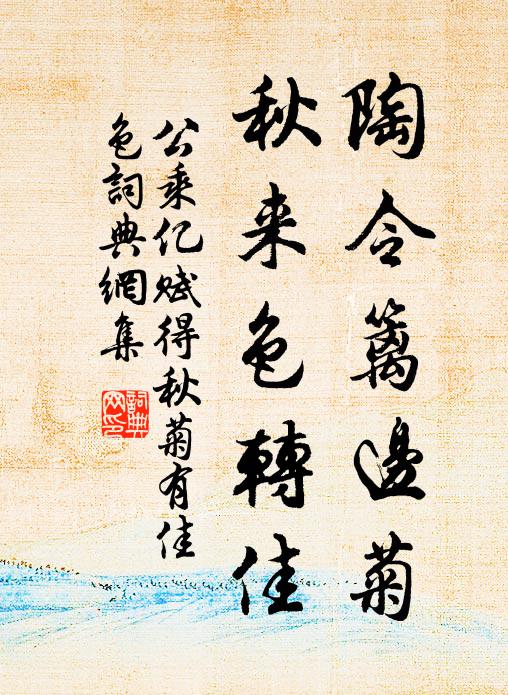 陶令篱邊菊
秋来色轉佳
公乘亿赋得秋菊有佳
色詞典網集
詞典網印